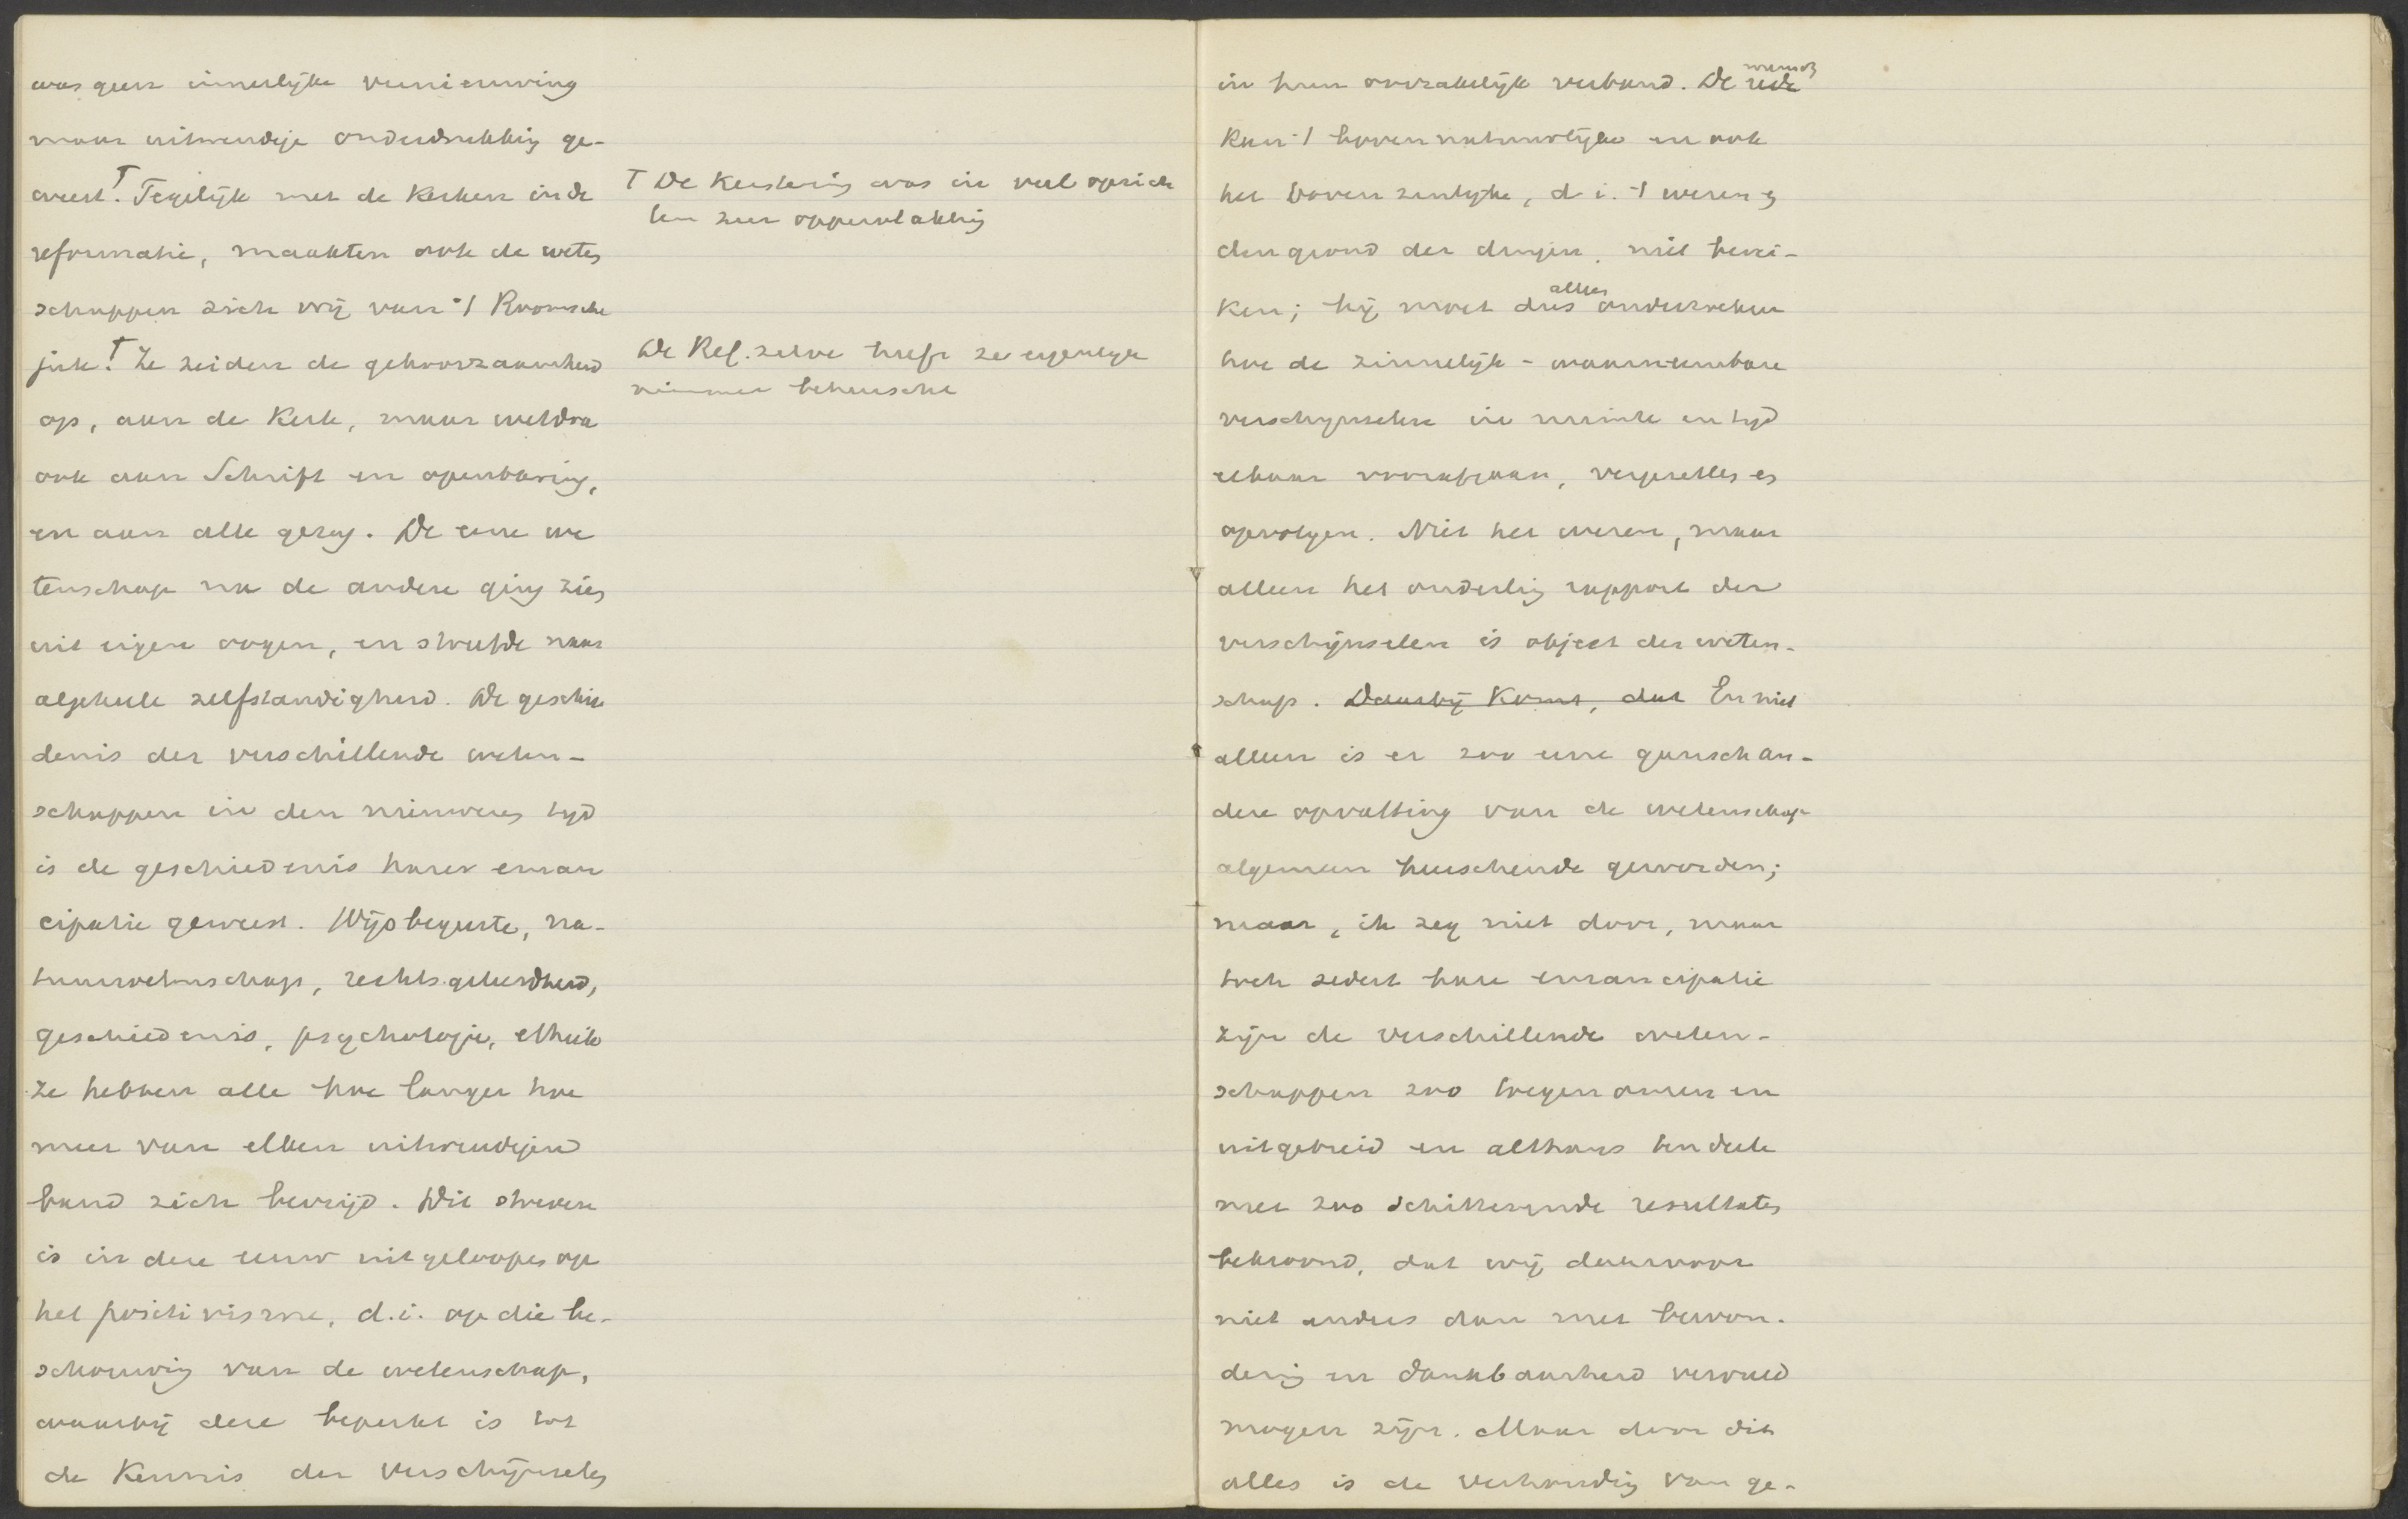 was geen innerlijke vernieuwing
maar uitwendige onderdrukking ge-
weest.† Tegelijk met de Kerken in de
reformatie, maakten ook de weten
schappen zich vrij van 't Roomsche
juk.† Ze zeiden de gehoorzaamheid
op, aan de Kerk, maar weldra
ook aan Schrift en openbaring,
en aan alle gezag. De eene we
tenschap na de andere ging zien
uit eigene oogen, en streefde naar
algeheele zelfstandigheid. De geschie
denis der verschillende weten-
schappen in den nieuweren tijd
is de geschiedenis harer eman
cipatie geweest. Wijsbegeerte, na-
tuurwetenschap, rechtsgeleerdheid,
geschiedenis, psychologie, ethiek
ze hebben alle hoe langer hoe
meer van elken uitwendigen
band zich bevrijd. Dit streven
is in deze eeuw uitgeloopen op
het positivisme, d.i. op die be-
schouwing van de wetenschap,
waarbij deze beperkt is tot
de Kennis der verschijnselen
† De Kerstening was in veel opzich
ten zeer oppervlakkig
De Ref. zelve heeft ze eigenlijk
nimmer beheerscht
in hun oorzakelijk verband. De rede
mensch
Kan 't bovennatuurlijke en ook
het bovenzinlijke, d.i. 't wezen en
den grond der dingen, niet berei-
alleen
Ken; hij moet dus onderzoeken
hoe de zinnelijk-waarneembare
verschijnselen in ruimte en tijd
elkaar voorafgaan, vergezellen en
opvolgen. Niet het wezen, maar
alleen het onderling rapport der
verschijnselen is object der weten-
schap. Daarbij Komt, dat En niet
alleen is er zoo eene gansch an-
dere opvatting van de wetenschap
algemeen heerschende geworden;
maar, ik zeg niet door, maar
toch sedert hare emancipatie
zijn de verschillende weten-
schappen zoo toegenomen en
uitgebreid en althans ten deele
met zoo schitterende resultaten
bekroond, dat wij daarvoor
niet anders dan met bewon-
dering en dankbaarheid vervuld
mogen zijn. Maar door dit
alles is de verhouding van ge-